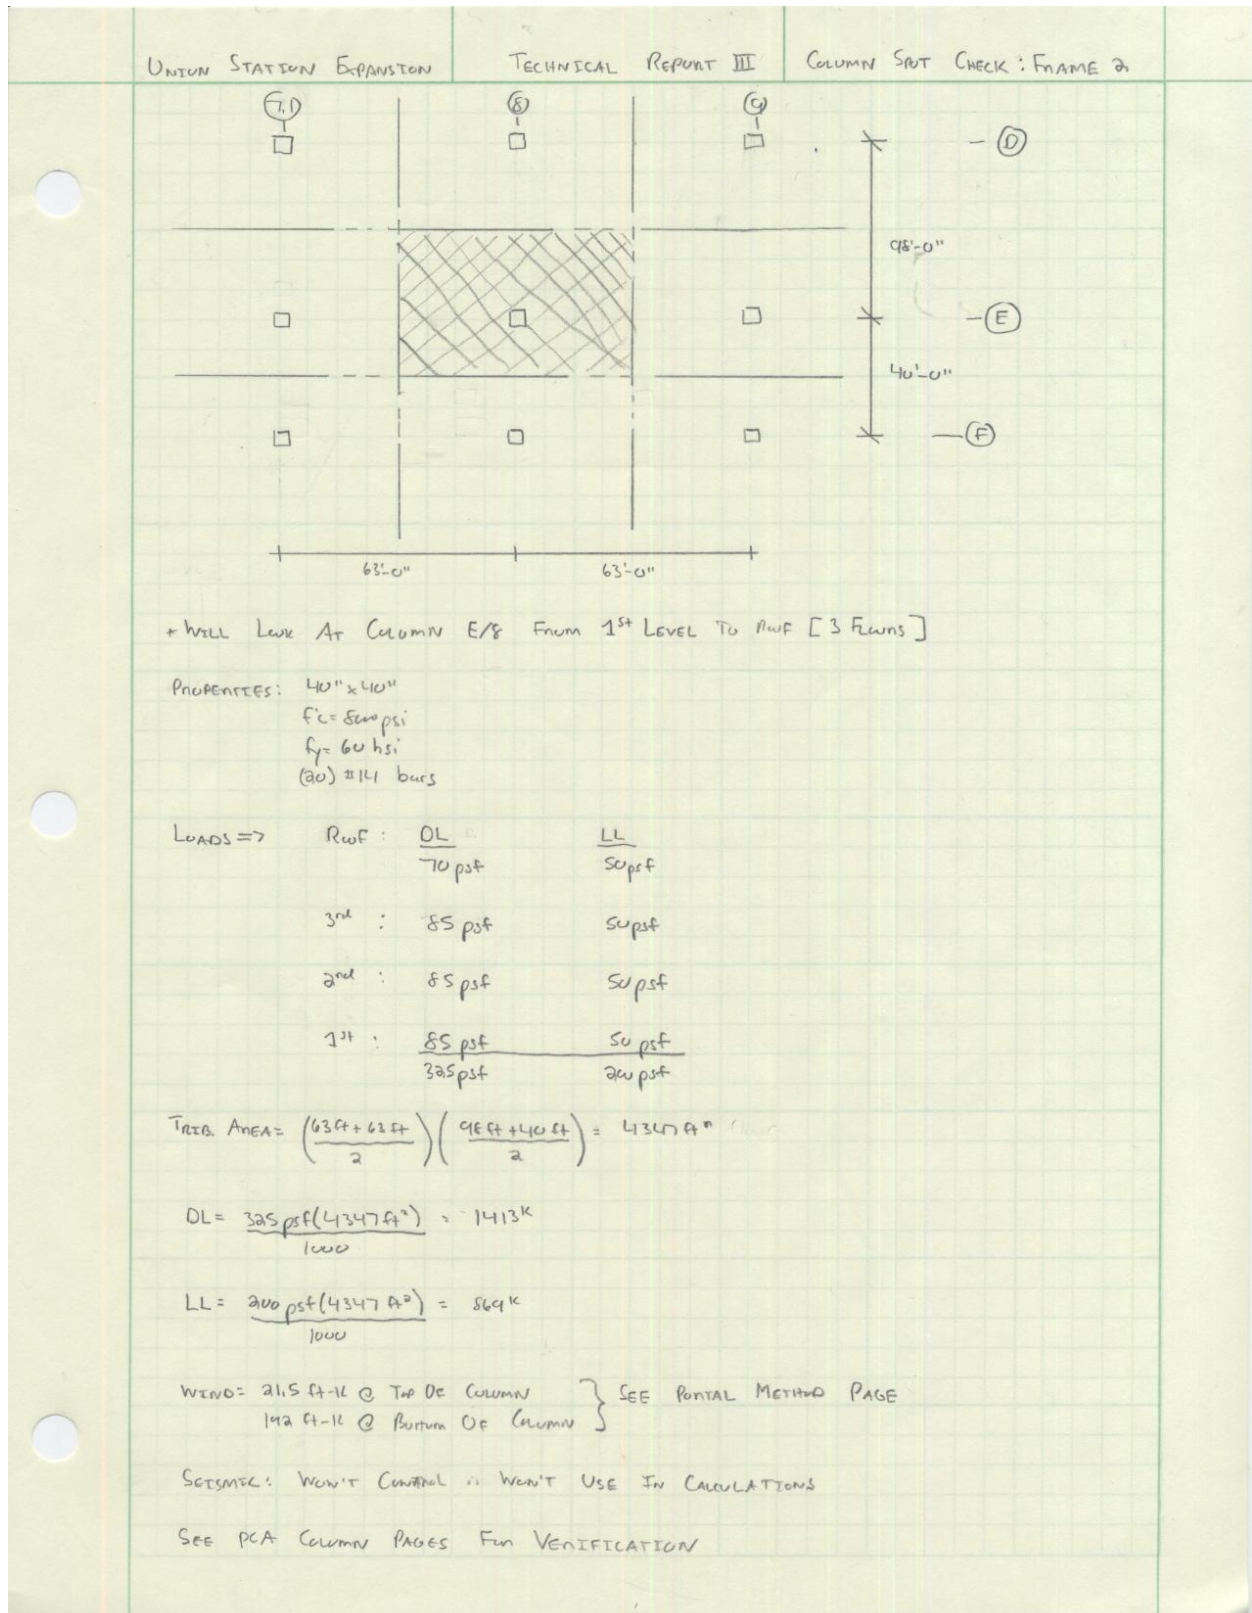 UNION STATION EXPANSION TECHNICAL REPORT III COLUMN SPOT CHECK: FRAME 2
7.1 8 9
D
98'-0"
E
40'-0"
F
63'-0" 63'-0"
* WILL LOOK AT COLUMN E/8 FROM 1st LEVEL TO ROOF [3 FLOORS]
PROPERTIES: 40" x 40"
f'c = 8000 psi
fy = 60 ksi
(20) #14 bars
LOADS => ROOF: DL LL
70 psf 50 psf
3rd : 85 psf 50 psf
2nd : 85 psf 50 psf
1st : 85 psf 50 psf
325 psf 200 psf
TRIB. AREA = (63 ft + 63 ft / 2)(98 ft + 40 ft / 2) = 4347 ft²
DL = 325 psf (4347 ft²) / 1000 = 1413 k
LL = 200 psf (4347 ft²) / 1000 = 869 k
WIND = 21.5 ft-k @ TOP OF COLUMN } SEE PORTAL METHOD PAGE
192 ft-k @ BOTTOM OF COLUMN
SEISMIC: WON'T CONTROL ∴ WON'T USE IN CALCULATIONS
SEE PCA COLUMN PAGES FOR VERIFICATION